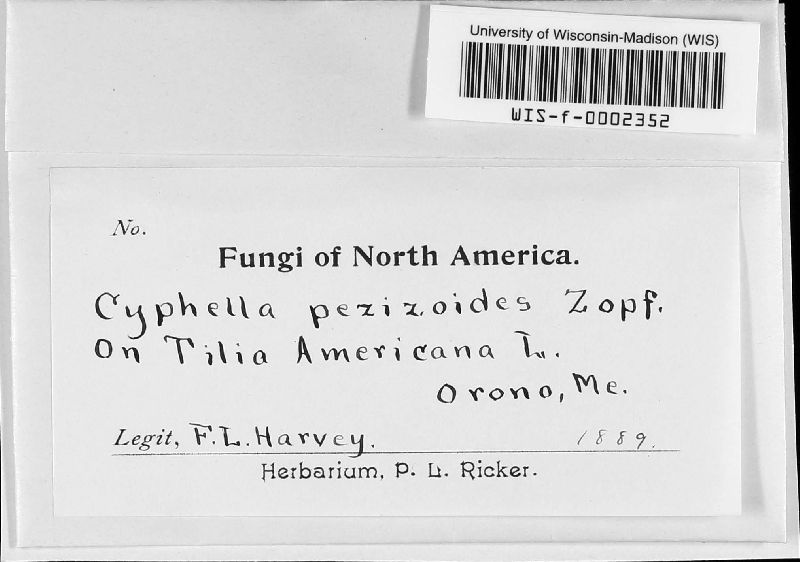 University of Wisconsin-Madison (WIS)
WIS-f-0002352
No.
Fungi of North America.
Cyphella pezizoides Zopf.
On Tilia Americana L.
Orono, Me.
Legit, F.L. Harvey. 1889.
Herbarium, P. L. Ricker.